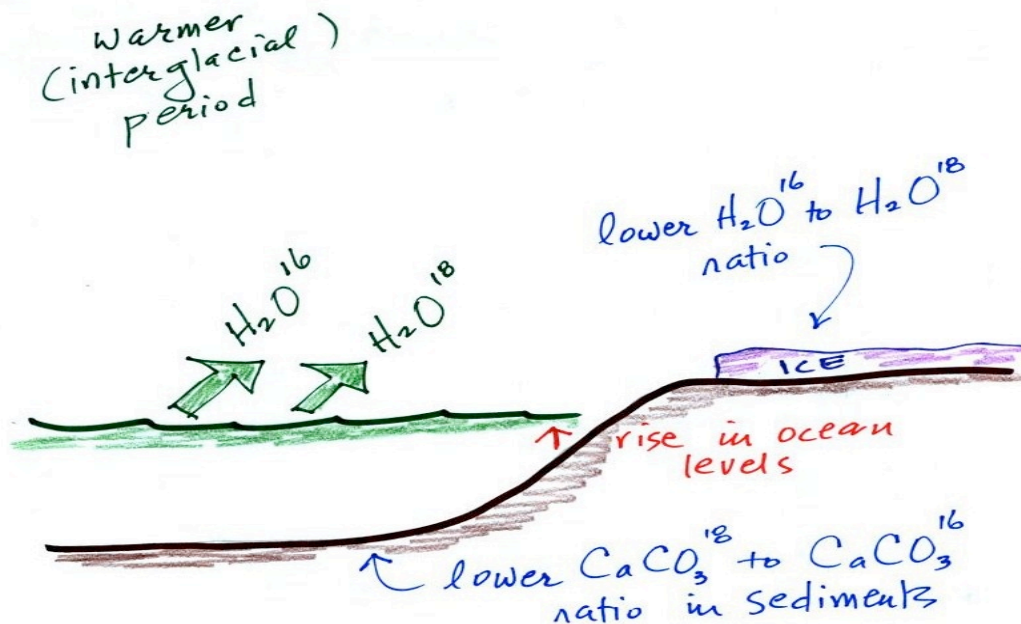 warmer
(interglacial)
period
lower H₂O¹⁶ to H₂O¹⁸
ratio
H₂O¹⁶
H₂O¹⁸
ICE
rise in ocean
levels
lower CaCO₃¹⁸ to CaCO₃¹⁶
ratio in sediments